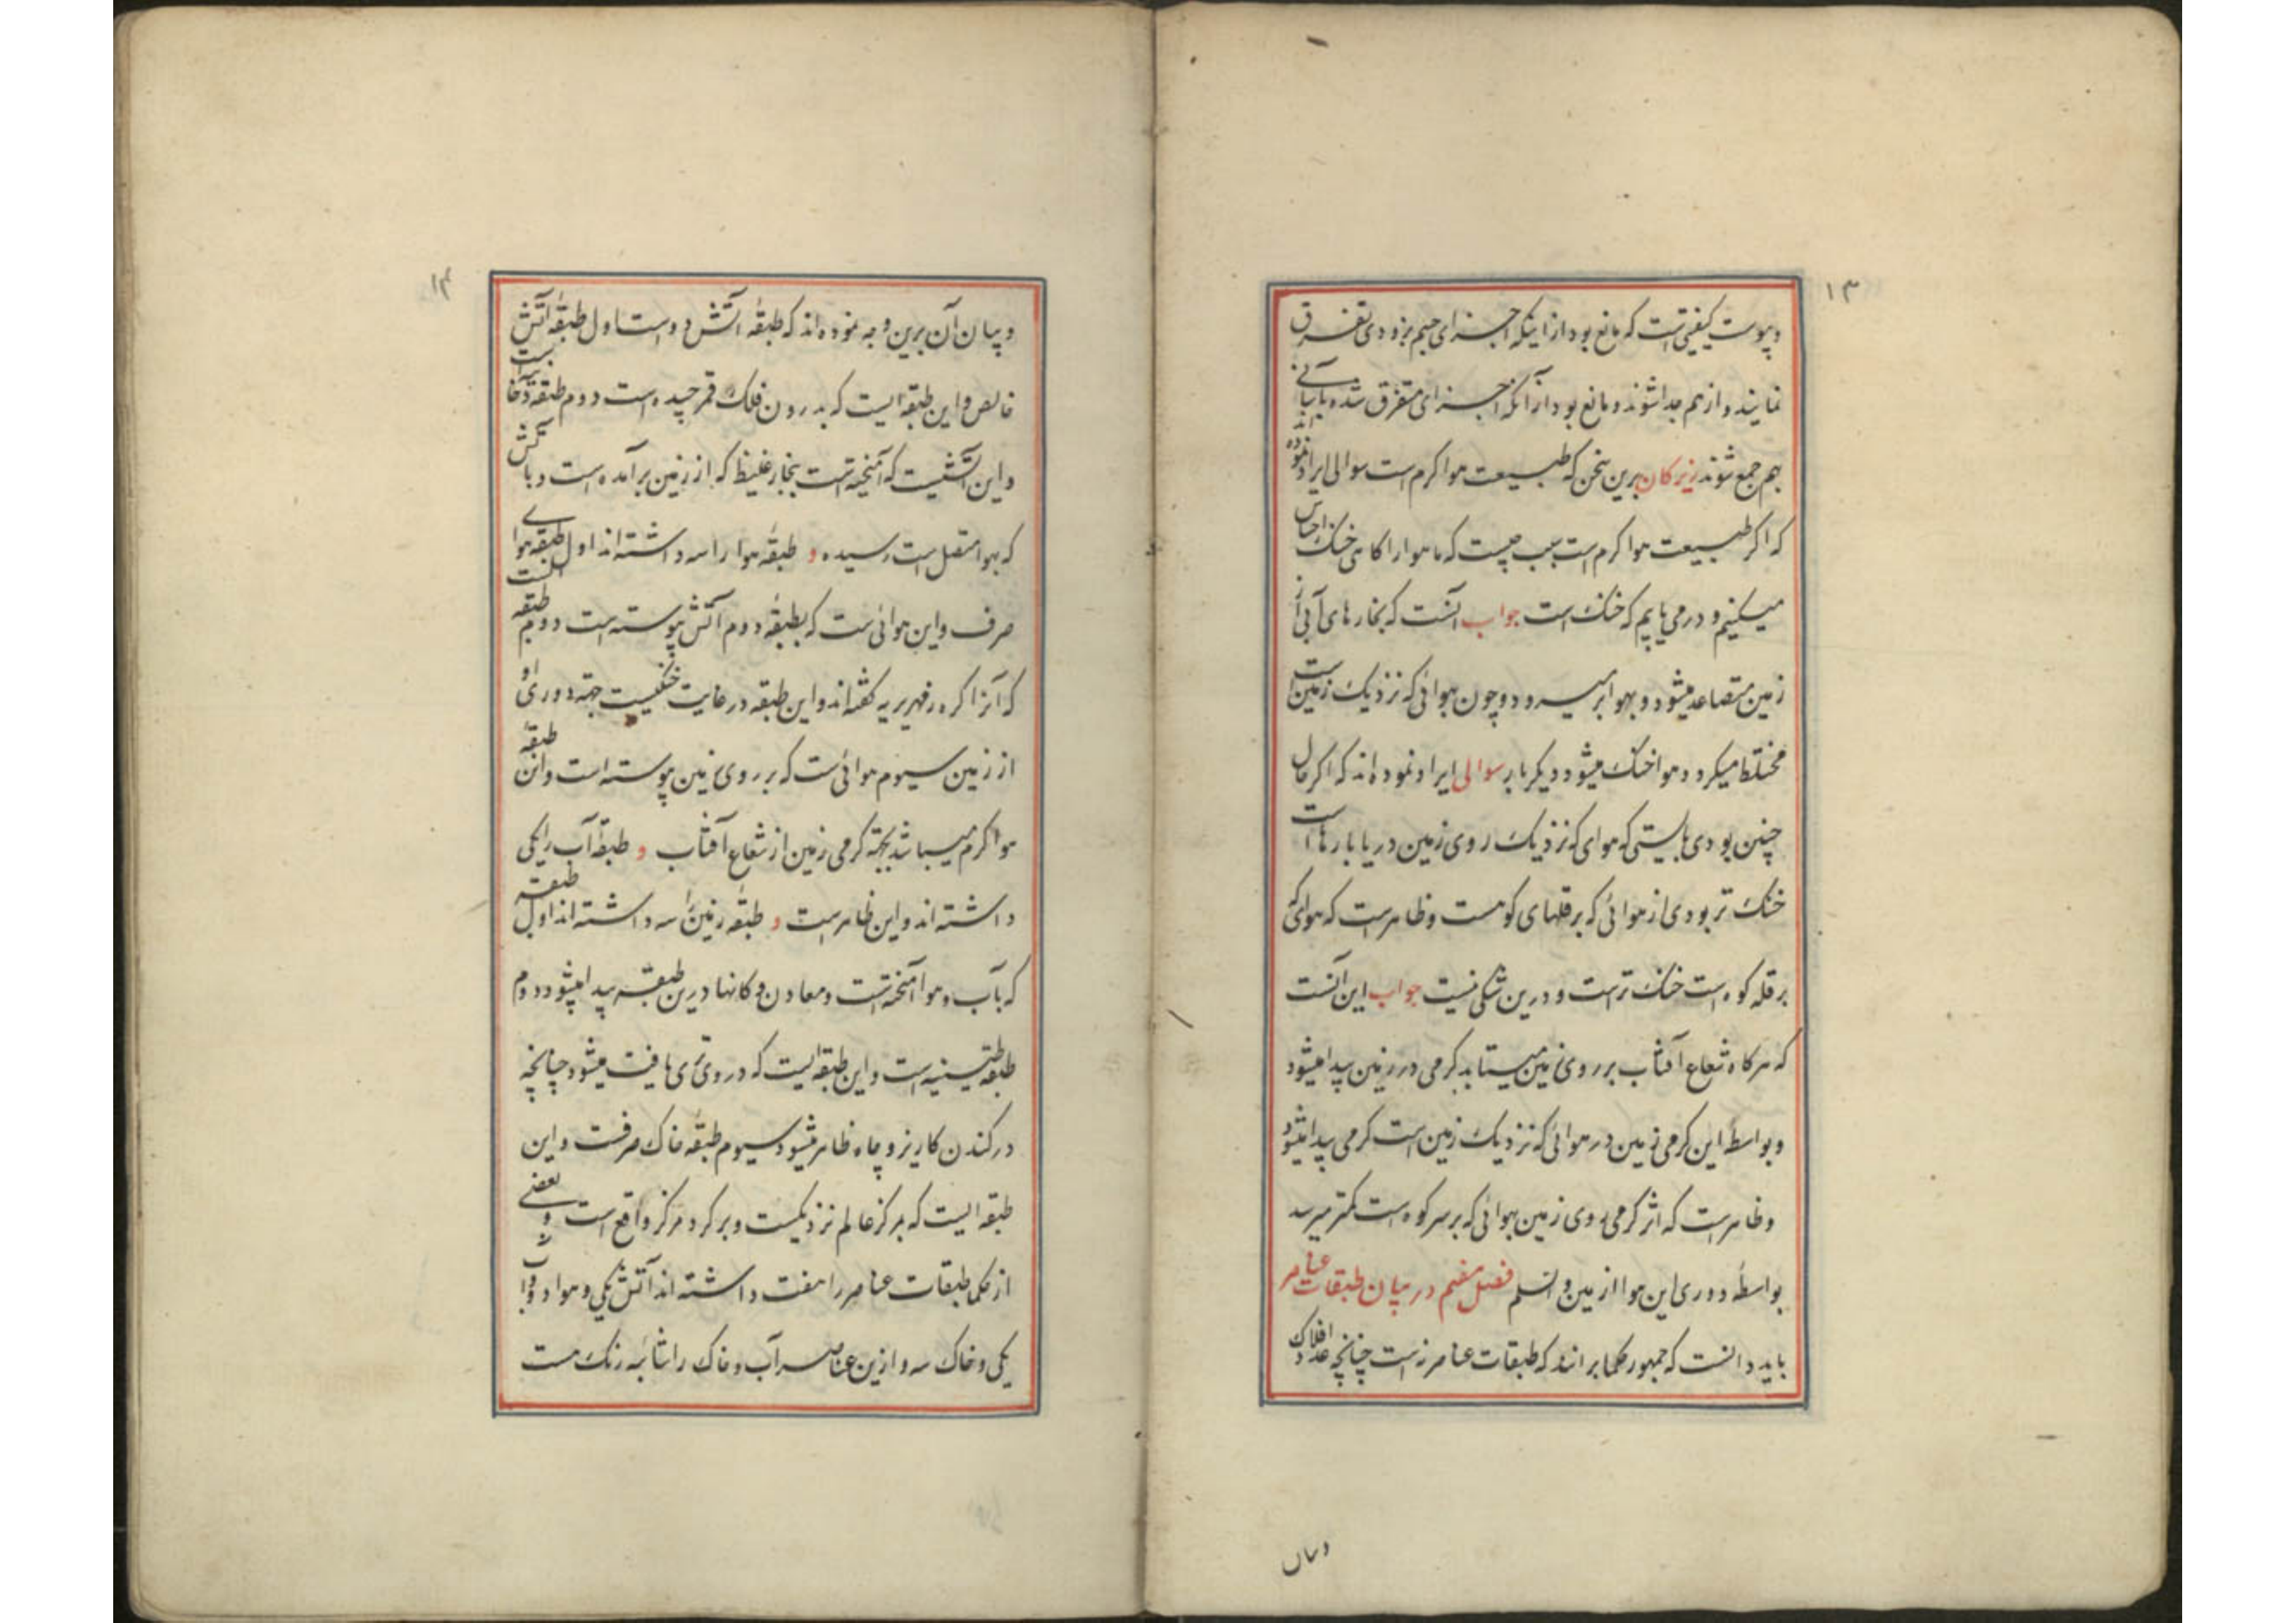 ۱۳
ویبوست کیفیتی است که مانع بود از اینکه اجزای جسم بزودی تفرق
نمایند و از هم جدا شوند و مانع بود از آنکه اجزای متفرق شده بآسانی
بهم جمع شوند زیرکان برین سخن که طبیعت هوا کرم است سوالی ایراد نموده اند
که اکر طبیعت هوا کرم است سبب چیست که ما هوا را کاهی خنک احساس
میکنیم و در می یابیم که خنک است جواب آنست که بخارهای آبی از
زمین متصاعد میشود و بهوا بر میرود و چون بهوائی که نزدیک زمین است
مختلط میکردد هوا خنک میشود دیکر بار سوالی ایراد نموده اند که اکر حال
چنین بودی بایستی که هوای که نزدیک روی زمین و دریا بارهاست
خنک تر بودی از هوائی که بر قلهای کوهست و ظاهر است که هوای که
بر قله کوه است خنک تر است و درین شکی نیست جواب این آنست
که هرکاه شعاع آفتاب بر روی زمین میتابد کرمی در زمین پیدا میشود
و بواسطهٔ این کرمی زمین در هوائی که نزدیک زمین است کرمی پیدا میشود
و ظاهر است که اثر کرمی روی زمین بهوائی که بر سر کوه است کمتر میرسد
بواسطهٔ دوری این هوا از زمین والسلم فصل هفتم در بیان طبقات عناصر
باید دانست که جمهور حکما برانند که طبقات عناصر نه است چنانچه عدد افلاک
وبیان
۱۴
و بیان آن برین وجه نموده اند که طبقهٔ آتش دو است اول طبقهٔ آتش
خالص و این طبقه ایست که بدرون فلک قمر چسپیده است دوم طبقهٔ دخانیه است
و این آتشیست که آمیخته است ببخار غلیظ که از زمین برآمده است و بآتش
که بهوا متصل است رسیده و طبقهٔ هوا را سه داشته اند اول طبقه هوای
صرف و این هوائی ست که بطبقهٔ دوم آتش پیوسته است دوم طبقه الیست
که آنرا کره زمهریریه کفته اند و این طبقه در غایت خنکیست جهة دوری او
از زمین سیوم هوائی ست که بر روی زمین پیوسته است و این طبقهٔ
هوا کرم میباشد بجهة کرمی زمین از شعاع آفتاب و طبقهٔ آب را یکی
داشته اند و این ظاهر است و طبقهٔ زمین را سه داشته اند اول طبقه
که بآب و هوا آمیخته است و معادن و کانها درین طبقه پیدا میشود دوم
طبقهٔ طینیه است و این طبقه ایست که در وی تری یافت میشود چنانچه
در کندن کاریز و چاه ظاهر میشود سیوم طبقهٔ خاک صرفست و این
طبقه ایست که بمرکز عالم نزدیکست و بر کرد مرکز واقع است و بعضی
از حکما طبقات عناصر را هفت داشته اند آتش یکی و هوا دو و آب
یکی و خاک سه و ازین عناصر آب و خاک را شائبه رنک هست